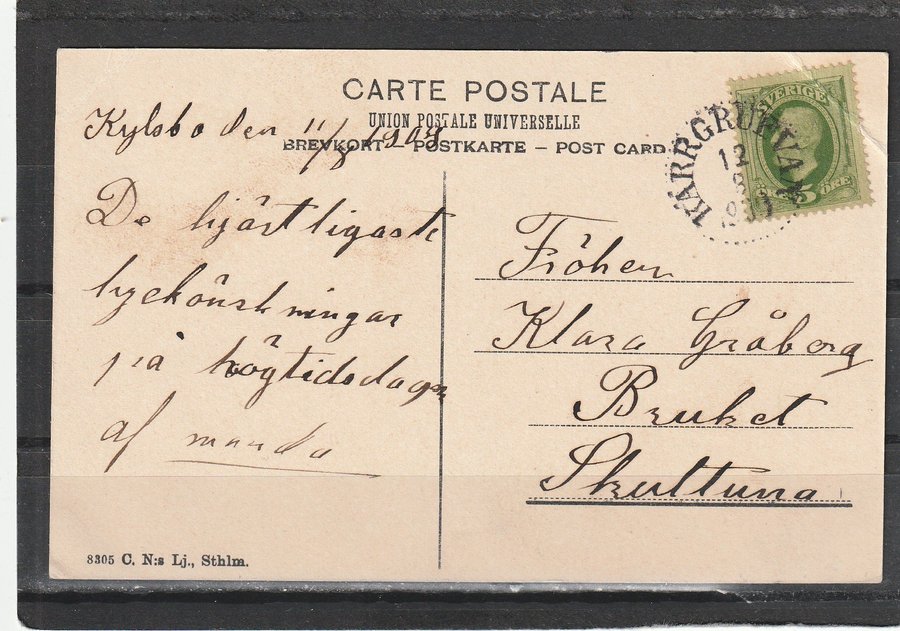 CARTE POSTALE
UNION POSTALE UNIVERSELLE
BREVKORT – POSTKARTE – POST CARD
Kylsbo den 11/8 1908
De hjärtligaste
lyckönskningar
på högtidsdagen
af manda
SVERIGE
5 ÖRE
KÄRRGRUFVAN
12
8
Fröken
Klara Gråberg
Bruket
Skultuna
8305 C. N:s Lj., Sthlm.